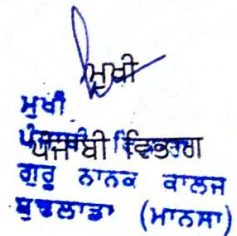 ਮੁਖੀ
ਮੁਖੀ
ਪੰਜਾਬੀ ਵਿਭਾਗ
ਪੰਜਾਬੀ ਵਿਭਾਗ
ਗੁਰੂ ਨਾਨਕ ਕਾਲਜ
ਬੁਢਲਾਡਾ (ਮਾਨਸਾ)